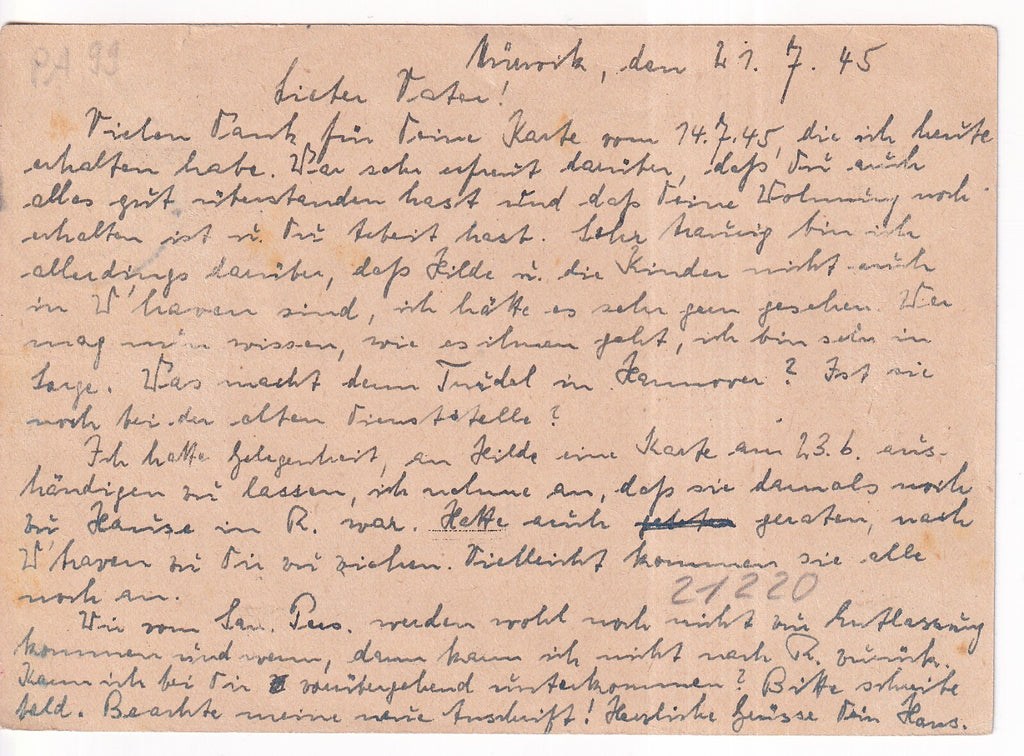 Mürwik, den 21. 7. 45
Lieber Vater!
Vielen Dank für Deine Karte vom 14.7.45, die ich heute
erhalten habe. War sehr erfreut darüber, daß Du auch
alles gut überstanden hast und daß Deine Wohnung noch
erhalten ist u. Du Arbeit hast. Sehr traurig bin ich
allerdings darüber, daß Hilde u. die Kinder nicht auch
in W'haven sind, ich hätte es sehr gern gesehen. Wer
mag nun wissen, wie es ihnen geht, ich bin sehr in
Sorge. Was macht denn Trudel in Hannover? Ist sie
noch bei der alten Dienststelle?
Ich hatte Gelegenheit, an Hilde eine Karte am 23.6. aus-
händigen zu lassen, ich nehme an, daß sie damals noch
zu Hause in R. war. Hatte auch geraten, nach
W'haven zu Dir zu ziehen. Vielleicht kommen sie alle
noch an.
21220
Wir vom San. Pers. werden wohl noch nicht zur Entlassung
kommen und wenn, dann kann ich nicht nach R. zurück.
Kann ich bei Dir vorübergehend unterkommen? Bitte schreibe
bald. Beachte meine neue Anschrift! Herzliche Grüsse Dein Hans.